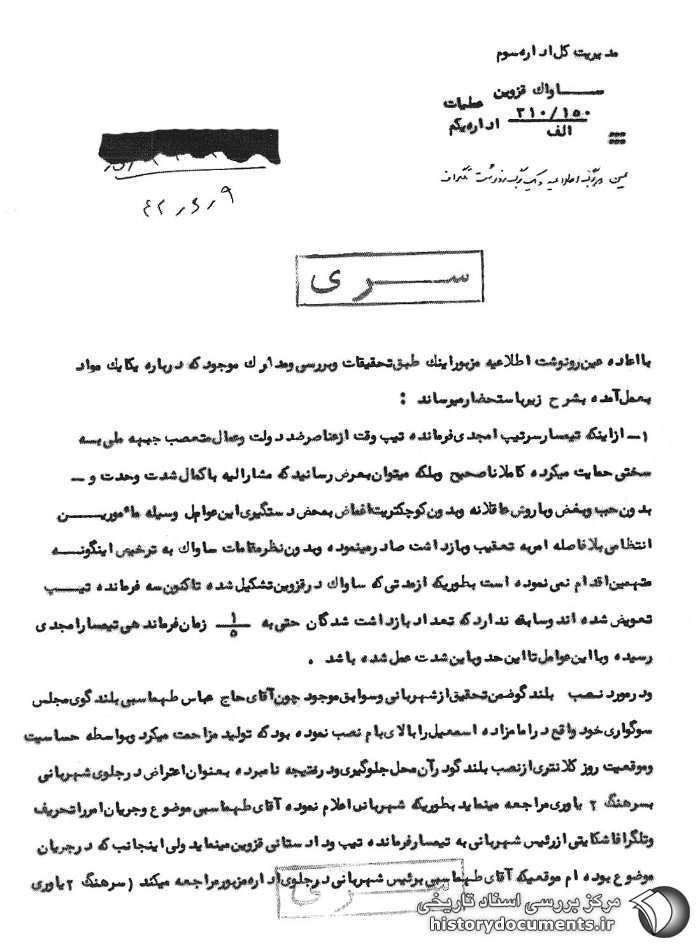 مدیریت کل اداره سوم
ســـاواک قزوین
عملیات
۳۱۰/۱۵۰
الف
اداره یکم
عین دو برگ اطلاعیه و یک برگ رونوشت تلگراف
۴۲٫۶٫۹
ســـری
با اعاده عین رونوشت اطلاعیه مزبور اینک طبق تحقیقات و بررسی و مدارک موجود که درباره یکایک مواد
بعمل آمده بشرح زیر باستحضار میرساند :
۱ـ از اینکه تیمسار سرتیپ امجدی فرمانده تیپ وقت از عناصر ضد دولت و عمال متعصب جبهه ملی بسه
سختی حمایت میکرده کاملا ناصحیح وبلکه میتوان بعرض رسانید که مشارالیه با کمال شدت وحدت و ـ
بدون حب وبغض وبا روش عاقلانه وبدون کوچکتریت اغماض بمحض دستگیری این عوامل وسیله مأموریـــن
انتظامی بلافاصله امر به تعقیب وبازداشت صادر مینموده وبدون نظر مقامات ساواک به ترخیص اینگونــه
متهمین اقدام نمی نموده است بطوریکه از مدتی که ساواک در قزوین تشکیل شده تاکنون سه فرمانده تیـــپ
تعویض شده اند وسابقه ندارد که تعداد بازداشت شدگان حتی به ۱/۵ زمان فرماندهی تیمسار امجدی
رسیده وبا این عوامل تا این حد وباین شدت عمل شده باشد .
ودر مورد نصب بلندگو ضمن تحقیق از شهربانی وسوابق موجود چون آقای حاج عباس طهماسبی بلندگوی مجلس
سوگواری خود واقع در امامزاده اسمعیل را بالای بام نصب نموده بود که تولید مزاحمت میکرد وبواسطه حساسیت
وموقعیت روز کلانتری از نصب بلندگو در آن محل جلوگیری ودر نتیجه نامبرده بعنوان اعتراض در جلوی شهربانی
بسرهنگ ۲ یاوری مراجعه مینماید بطوریکه شهربانی اعلام نموده آقای طهماسبی موضوع وجریان امر را تحریف
وتلگرافا شکایتی از رئیس شهربانی به تیمسار فرمانده تیپ ودادستانی قزوین مینماید ولی اینجانب که در جریان
موضوع بوده ام موقعیکه آقای طهماسبی برئیس شهربانی در جلوی اداره مزبور مراجعه میکند ( سرهنگ ۲ یاوری
ســـری
مرکز بررسی اسناد تاریخی
historydocuments.ir